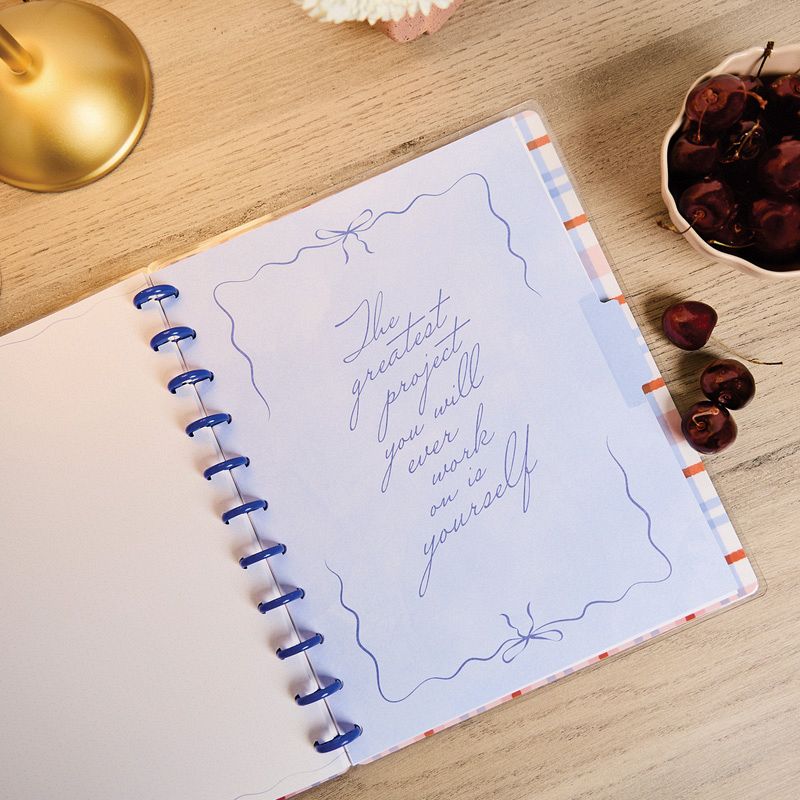 The
greatest
project
you will
ever
work
on is
yourself